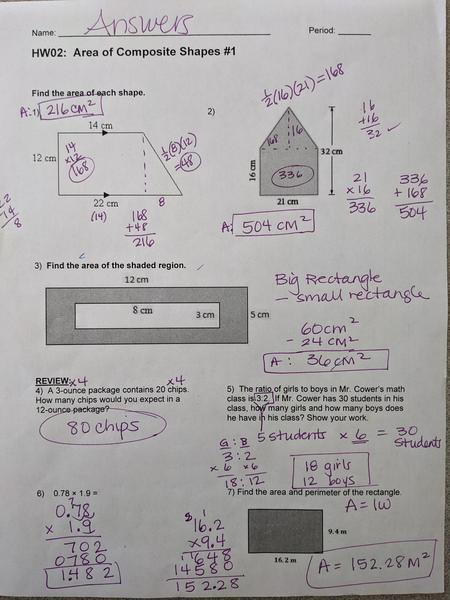 Name: Answers Period:
HW02: Area of Composite Shapes #1
Find the area of each shape.
A: 1) 216 cm²
2)
½(16)(21) = 168
14 cm
12 cm
14
x12
168
½(8)(12)
=48
22 cm
8
(14)
168
+48
216
168
16
336
16 cm
32 cm
21 cm
16
+16
32 ✓
21
x16
336
336
+168
504
A: 504 cm²
3) Find the area of the shaded region.
12 cm
8 cm
3 cm
5 cm
Big Rectangle
- small rectangle
60cm²
- 24 cm²
A: 36cm²
REVIEW: x4 x4
4) A 3-ounce package contains 20 chips.
How many chips would you expect in a
12-ounce package?
80 chips
5) The ratio of girls to boys in Mr. Cower's math
class is 3:2. If Mr. Cower has 30 students in his
class, how many girls and how many boys does
he have in his class? Show your work.
5 students x 6 = 30
students
G : B
3 : 2
x 6 x6
18 : 12
18 girls
12 boys
6) 0.78 × 1.9 =
0.78
x 1.9
702
0780
1.482
16.2
x9.4
648
14580
152.28
7) Find the area and perimeter of the rectangle.
A = lw
9.4 m
16.2 m
A = 152.28 M²